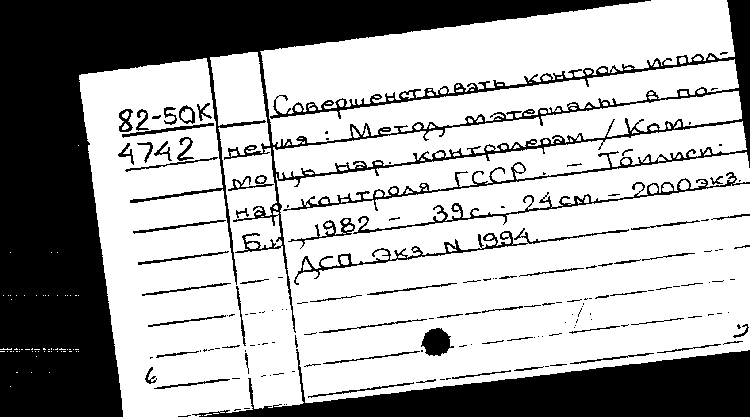 82-5QK Совершенствовать контроль испол-
4742 нения : Метод. материалы в по-
мощь нар. контролерам / Ком.
нар. контроля ГССР. – Тбилиси:
Б.и., 1982. – 39с.; 24см. – 2000экз.
ДСП. Экз. N 1994.
6